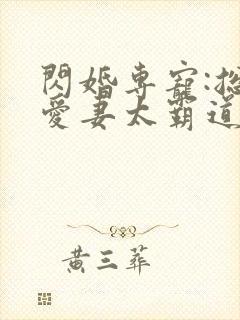 閃婚專寵:總
愛妻太霸道
黃三葬